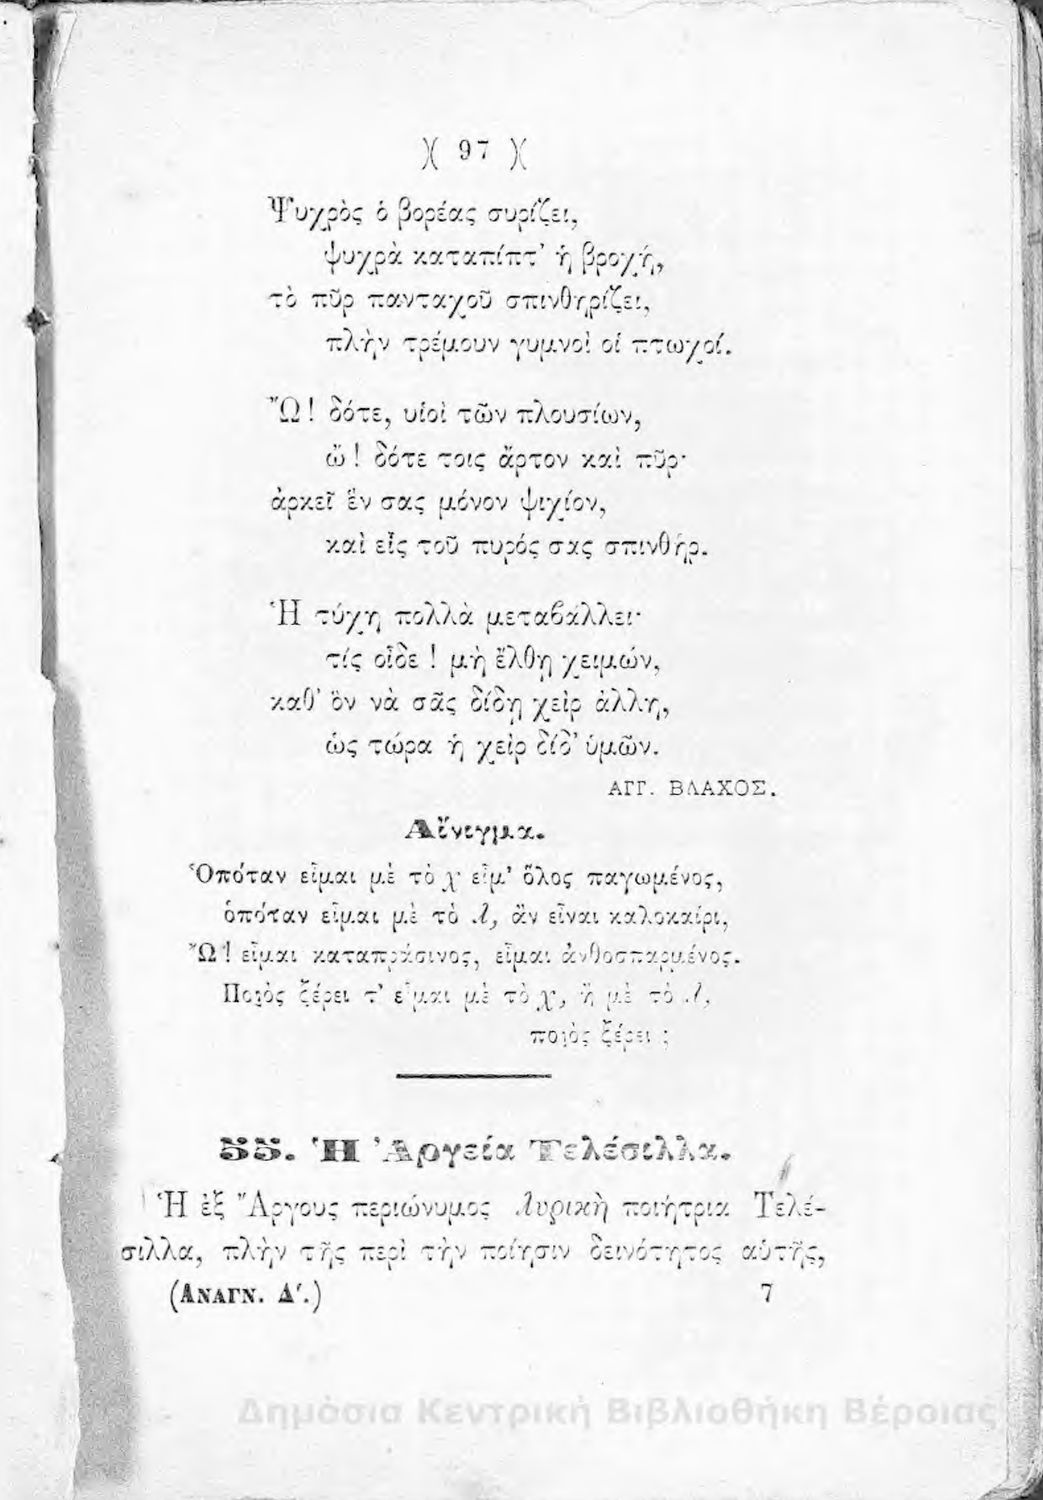 )( 97 )(
Ψυχρὸς ὁ βορέας συρίζει,
ψυχρὰ καταπίπτ' ἡ βροχή,
τὸ πῦρ πανταχοῦ σπινθηρίζει,
πλὴν τρέμουν γυμνοὶ οἱ πτωχοί.
Ὢ! δότε, υἱοὶ τῶν πλουσίων,
ὢ! δότε τοις ἄρτον καὶ πῦρ·
ἀρκεῖ ἕν σας μόνον ψιχίον,
καὶ εἷς τοῦ πυρός σας σπινθήρ.
Ἡ τύχη πολλὰ μεταβάλλει·
τίς οἶδε! μὴ ἔλθῃ χειμών,
καθ' ὃν νὰ σᾶς δίδῃ χεὶρ ἄλλη,
ὡς τώρα ἡ χεὶρ δίδ' ὑμῶν.
ΑΓΓ. ΒΛΑΧΟΣ.
Αἴνιγμα.
Ὁπόταν εἶμαι μὲ τὸ χ εἶμ' ὅλος παγωμένος,
ὁπόταν εἶμαι μὲ τὸ λ, ἂν εἶναι καλοκαίρι,
Ὢ! εἶμαι καταπράσινος, εἶμαι ἀνθοσπαρμένος.
Ποιὸς ξέρει τ' εἶμαι μὲ τὸ χ, ἢ μὲ τὸ λ,
ποιὸς ξέρει ;
55. Ἡ Ἀργεία Τελέσιλλα.
Ἡ ἐξ Ἄργους περιώνυμος λυρικὴ ποιήτρια Τελέ-
σιλλα, πλὴν τῆς περὶ τὴν ποίησιν δεινότητος αὐτῆς,
(ΑΝΑΓΝ. Δ'.) 7
Δημόσια Κεντρική Βιβλιοθήκη Βέροιας